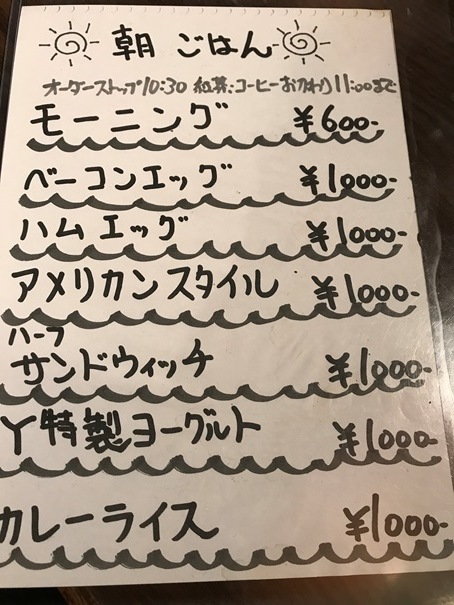 朝ごはん
オーダーストップ10:30 紅茶・コーヒーおかわり11:00まで
モーニング ¥600-
ベーコンエッグ ¥1000-
ハムエッグ ¥1000-
アメリカンスタイル ¥1000-
ハーフ
サンドウィッチ ¥1000-
Y特製ヨーグルト ¥1000-
カレーライス ¥1000-